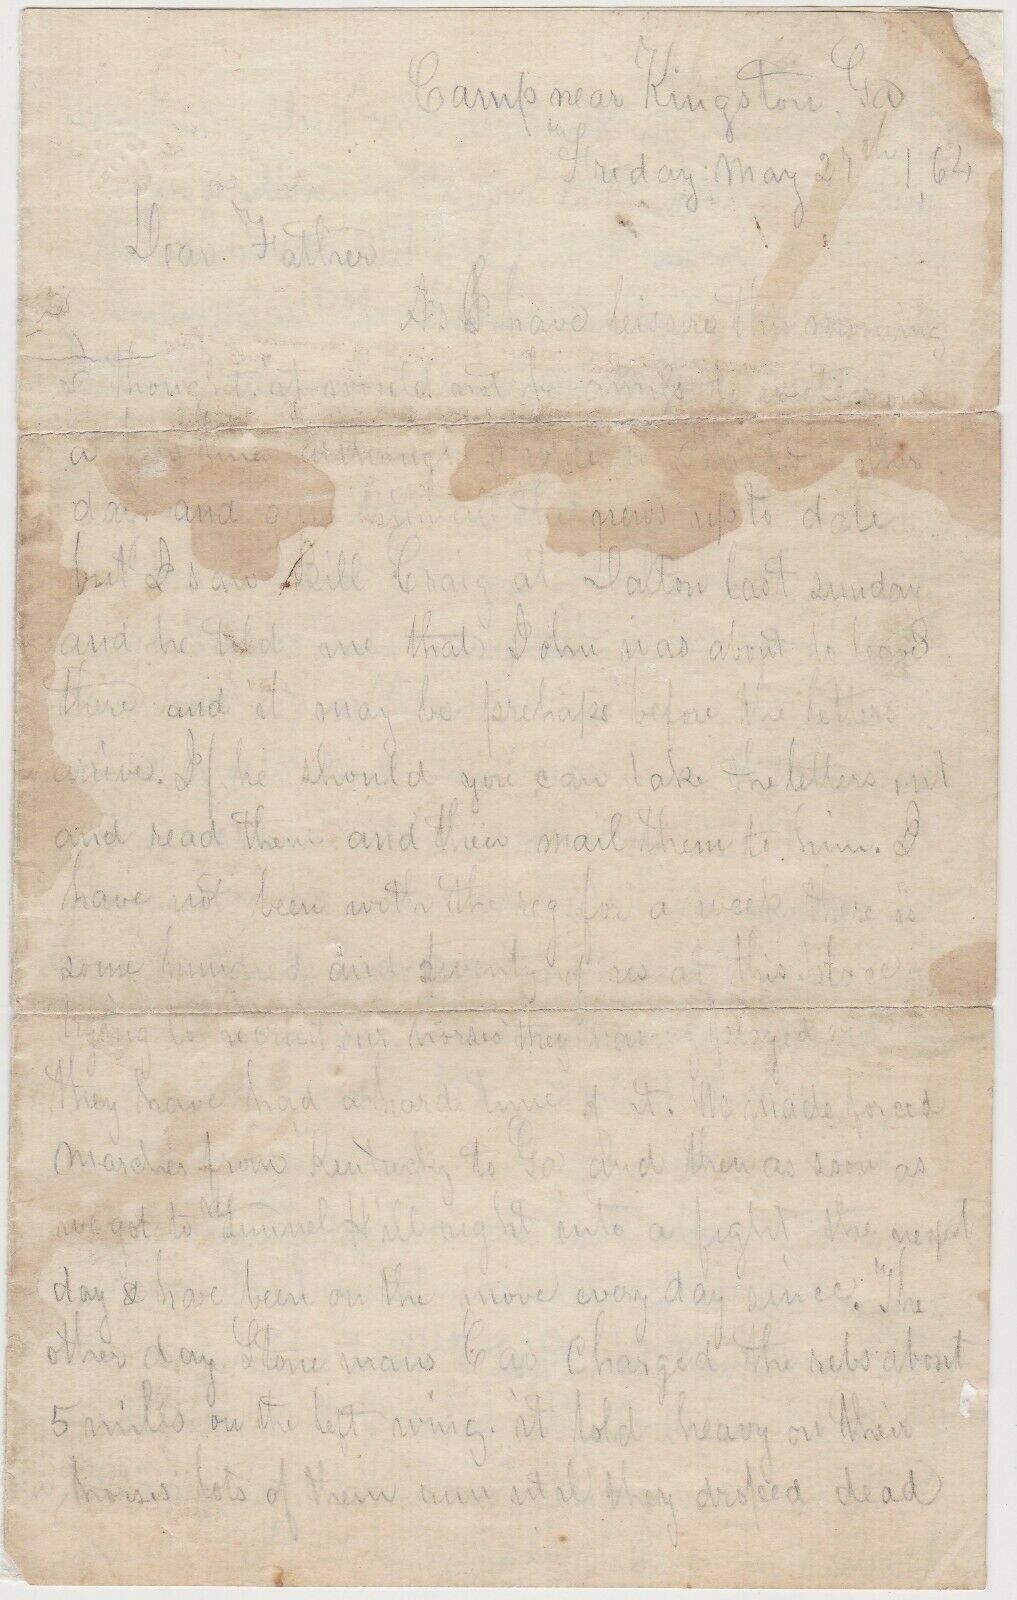 Camp near Kingston Ga
Friday May 27th 1,64
Dear Father
As I have leisure this morning
I thought it would not be amiss to
a few lines although I wrote to other
day and gave him all the news up to date
but I saw Bill Craig at Dalton last sunday
and he told me that John was about to leave
there and it may be prehaps before the letters
arrive. If he should you can take the letters out
and read them and then mail them to him. I
have not been with the reg for a week there is
some hundred and twenty of us at this place
trying to recruit our horses they have played
they have had a hard time of it. We made forced
marches from Kentucky to Ga and then as soon as
we got to Tunnel Hill right into a fight the next
day & have been on the move every day since. The
other day Stonemans Cav Charged the rebs about
5 miles on the left wing. it told heavy on their
horses lots of them run util they droped dead